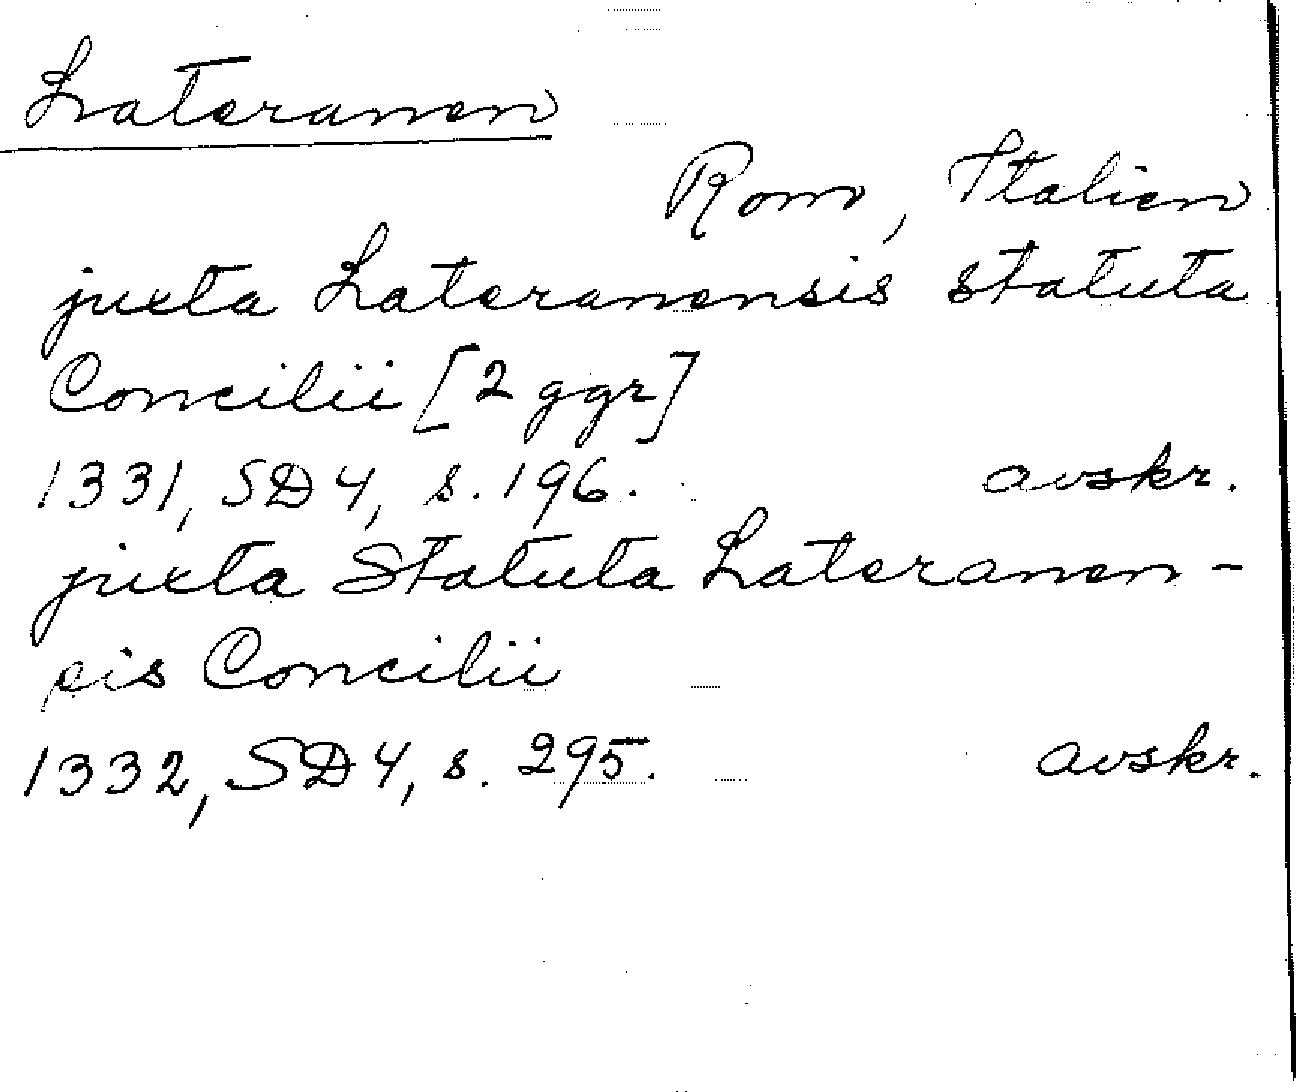 Lateranen
Rom, Italien
juxta Lateranensis statuta
Concilii [2 ggr]
1331, SD 4, s. 196. avskr.
juxta Statuta Lateranen-
sis Concilii
1332, SD 4, s. 295. avskr.